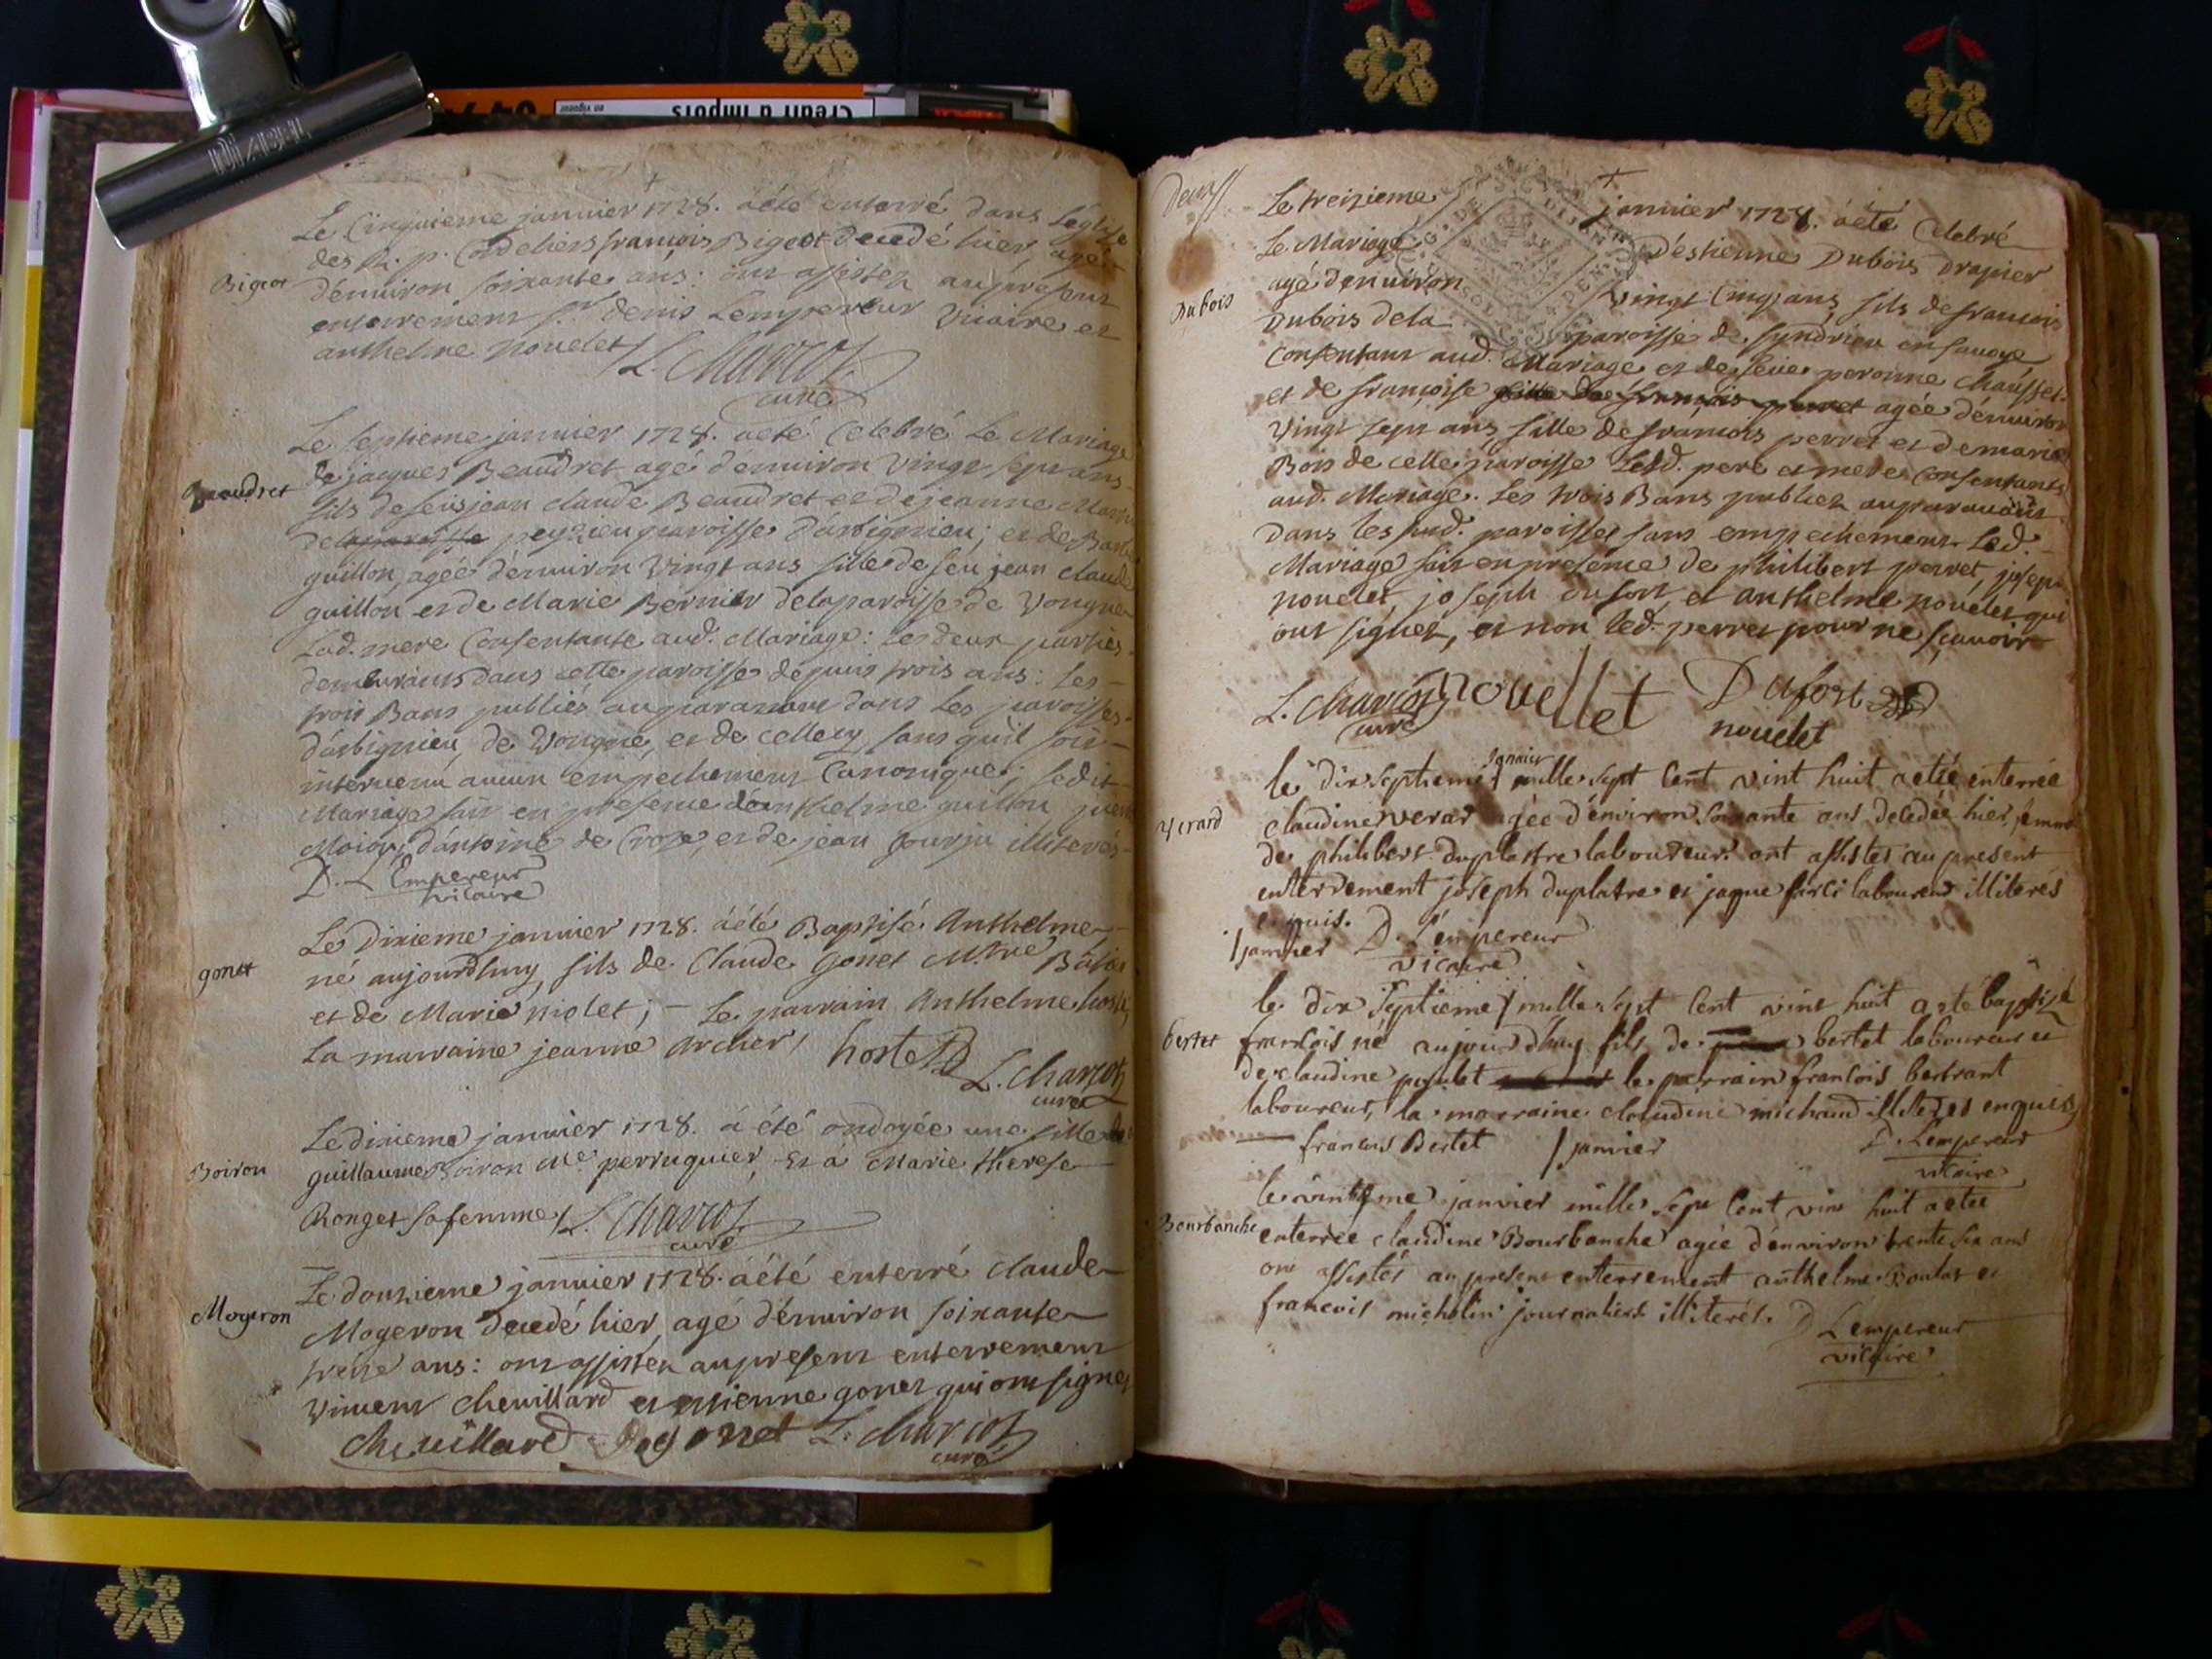 DIABEL
Crédit d'impôts
en vigueur
Le Cinquieme janvier 1728. a été enterré dans L'eglise
des R. p. Cordeliers françois Bigeot decedé hier, agé
Bigeot
d'environ soixante ans: ont assistez au present
enterrement Sr denis Lempereur Vicaire et
anthelme nouelet L. Charcot
curé
Le septieme janvier 1728. a été Celebré Le Mariage
Beaudret
de jacques Beaudret agé d'environ Vingt sept ans
fils de feu jean claude Beaudret et de jeanne
de la paroisse peyzieu paroisse D'arbignieu; et de
guillon, agée d'environ Vingt ans fille de feu jean claude
guillon et de Marie Bernier de la paroisse de Vongne
Lad. mere Consentante aud. Mariage: Les deux parties
demeurants dans cette paroisse depuis trois ans: Les
trois Bans publiés auparavant dans Les paroisses
d'arbignieu, de Vongne, et de celle cy, sans qu'il soit
intervenu aucun empechement Canonique; Ledit
Mariage fait en presence d'anthelme guillon
d'antoine de Croze, et de jean Gourju illiterés
D. L'Empereur
vicaire
Le Dixieme janvier 1728. a été Baptisé Anthelme
gonet
né aujourdhuy, fils de Claude Gonet M.tre
et de Marie niolet; - Le parrain Anthelme hoste,
La marraine jeanne Archer,
hoste L. Charcot
curé
Le dixieme janvier 1728. a été ondoyée une fille de
Boiron
guillaume Boiron M.e perruquier, et a Marie therese
Ronget sa femme, L. Charcot
curé
Le douzieme janvier 1728. a été enterré claude
Mogeron
Mogeron decedé hier, agé d'environ soixante
treize ans: ont assistez au present enterrement
Vincent Chevillard et etienne gonet qui ont signez
chevillard gonet L. Charcot
curé
Le treizieme janvier 1728. a été Celebré
Le Mariage d'estienne Dubois Drapier
agé d'environ vingt Cinq ans, fils de francois
Dubois
Dubois de la paroisse de Syndrieu en Savoye
Consentant aud. Mariage et de feüe peronne Chausset
et de françoise fille de françois perret agée d'environ
Vingt sept ans, fille de francois perret et de marie
Bois de cette paroisse Lesd. pere et mere Consentants
aud. Mariage. Les trois Bans publiez auparavant
Dans les sud. paroisses sans empechement. Led.
Mariage fait en presence de philibert perret, joseph
nouelet, joseph dufort, et anthelme nouelet qui
ont signez, et non led. perret pour ne sçavoir
L. Charcot nouellet Dufort
curé nouelet
janvier
le dix septieme / mille sept Cent vint huit a eté enterrée
Verard
claudine verar agée d'environ soixante ans decedée hier, femme
de philibert duplastre laboureur. ont assistés au present
enterrement joseph duplatre et jaque laboureurs illiterés
enquis. D. L'empereur
vicaire
/ janvier
le dix septieme / mille sept Cent vint huit a eté baptisé
bertet
francois né aujourd'huy fils de bertet laboureur et
de claudine le parrain francois bertrant
laboureur, la marraine claudine michaud illiteres enquis
francois Bertet / janvier D. L'empereur
vicaire
le vintieme janvier mille sept Cent vint huit a eté
Bourbanche
enterrée claudine Bourbanche agée d'environ trente six ans
ont assistés au present enterrement anthelme et
francois michelin journaliers illiterés. D L'empereur
vicaire